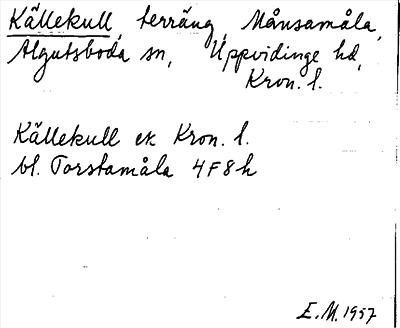 Källekull, terräng, Månsamåla,
Algutsboda sn, Uppvidinge hd,
Kron. l.
Källekull ek Kron. l.
bl. Torstamåla 4F8h
E.M. 1957